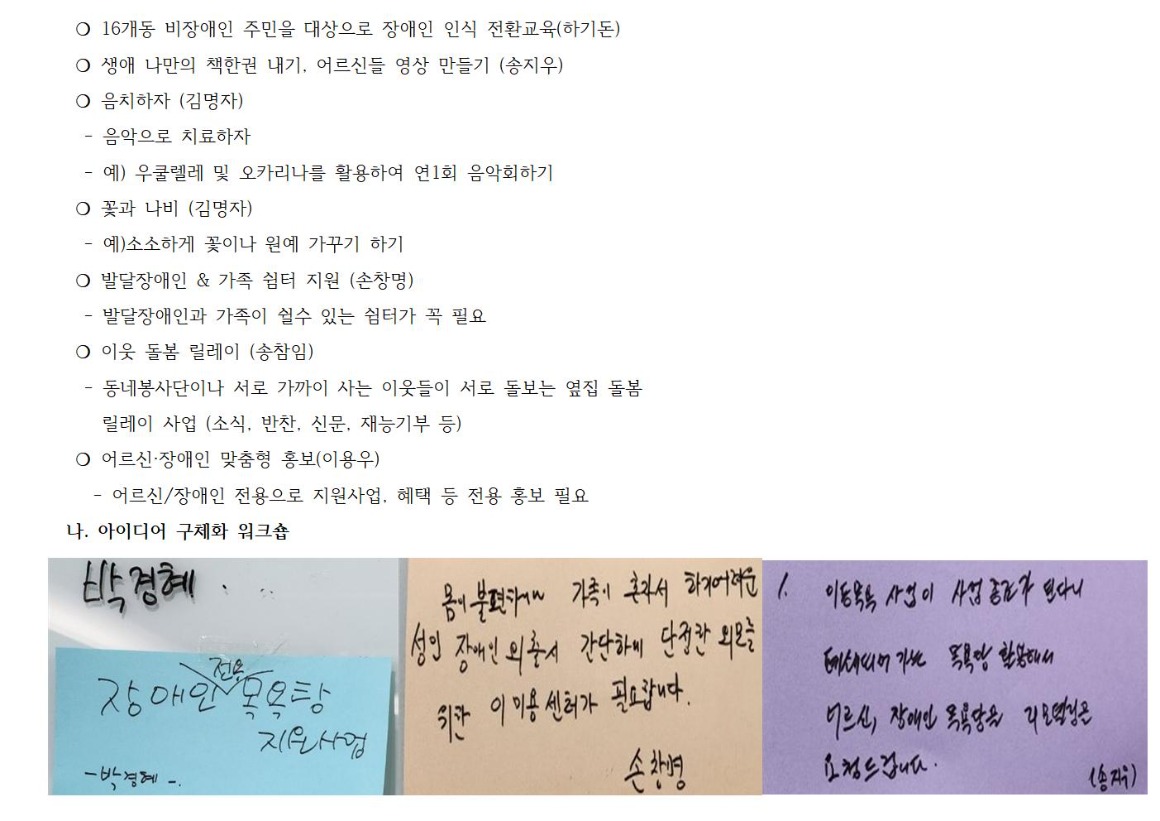 ❍ 16개동 비장애인 주민을 대상으로 장애인 인식 전환교육(하기돈)
❍ 생애 나만의 책한권 내기, 어르신들 영상 만들기 (송지우)
❍ 음치하자 (김명자)
- 음악으로 치료하자
- 예) 우쿨렐레 및 오카리나를 활용하여 연1회 음악회하기
❍ 꽃과 나비 (김명자)
- 예)소소하게 꽃이나 원예 가꾸기 하기
❍ 발달장애인 & 가족 쉼터 지원 (손창명)
- 발달장애인과 가족이 쉴수 있는 쉼터가 꼭 필요
❍ 이웃 돌봄 릴레이 (송참임)
- 동네봉사단이나 서로 가까이 사는 이웃들이 서로 돌보는 옆집 돌봄
릴레이 사업 (소식, 반찬, 신문, 재능기부 등)
❍ 어르신·장애인 맞춤형 홍보(이용우)
- 어르신/장애인 전용으로 지원사업, 혜택 등 전용 홍보 필요
나. 아이디어 구체화 워크숍
박경혜
전용
장애인 목욕탕
지원사업
-박경혜-.
몸이 불편하여 가족이 혼자서 하기어려운
성인 장애인 외출시 간단하게 단정한 외모를
위한 이미용센터가 필요합니다.
손창명
1. 이동목욕 사업이 사업종료가 된다니
폐쇄되어가는 목욕탕 활용해서
어르신, 장애인 목욕탕을 리모델링을
요청드립니다.
(송지우)